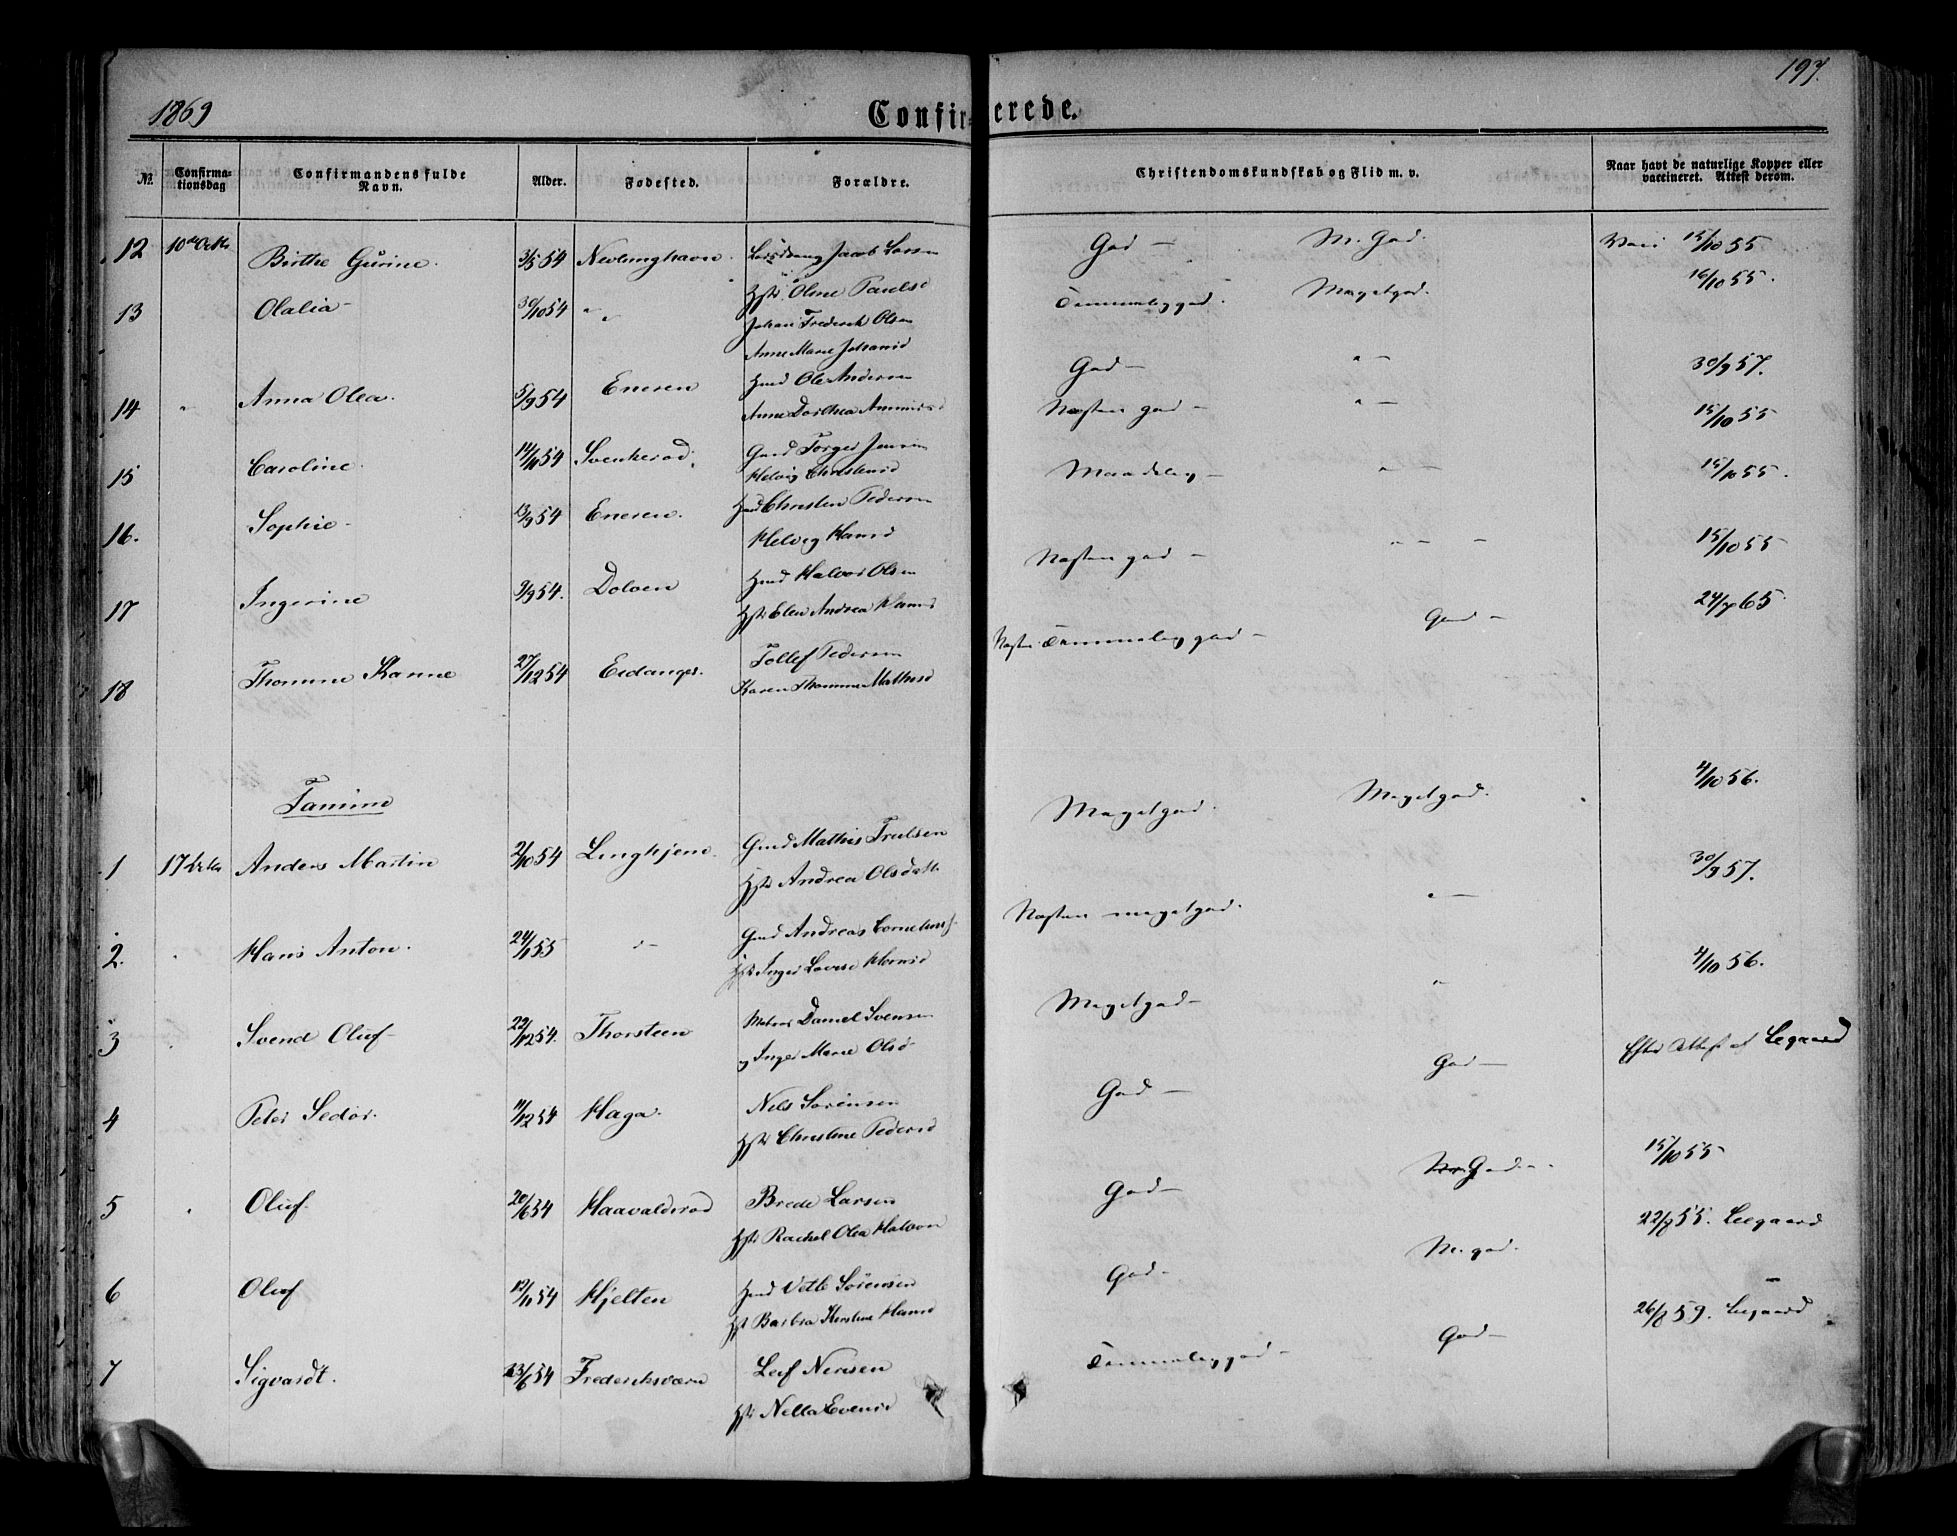 1869
197.
Confirmerede.
No. Confirmationsdag Confirmandens fulde Navn. Alder. Fødested. Forældre. Christendomskundskab og Flid m. v. Naar havt de naturlige Kopper eller vaccineret. Attest derom.
12 10de Octbr Birthe Gurine. 3/5 54 Nevlunghavn. Jacob Larsen God — M. God. 15/10 55
Olene Paulsd
13 Olalia — 30/10 54 " " Johan Frederik Olsen Temmelig god. Meget god. 16/10 55.
Anne Marie Johansd
14 " Anna Olea. 5/9 54 Eneren Ole Andersen God — " — 30/9 57.
Anne Dorthea
15 Caroline. 14/10 54 Svenkerød. Gmd Torger Jensen Næsten god — " — 15/10 55
Helvig Christensd
16. Sophie — 13/9 54 Eneren. Hmd Christen Pedersen Maadelig — " — 15/10 55.
Helvig Hansd
17 Ingerine 9/9 54. Dolven Hmd Halvor Olsen Næsten god — " — — 15/10 55
Hstr Elen Andrea Hansd
18 Thomine Hanne 27/12 54 Eidanger. Tollef Pedersen Næsten Temmelig god — God — 24/7 65
Karen Thomine Mathisd
Tanum
1 17 Octbr Anders Martin 2/10 54 Linghjem. Gmd Mathis Trulsen Meget god. Meget god. 4/10 56.
Hstr Andrea Olsdatt.
2. " Hans Anton. 24/1 55 " — Gmd Andreas Corneliuss Næsten meget god. " — 30/9 57.
Hstr Inger Lovise Hansd
3 Svend Oluf — 29/12 54. Thorsteen Matros Daniel Svensen Meget god — " 4/10 56.
og Inger Marie Olsd
4 Peter Sedor. 11/12 54 Haga. Nels Sørensen God — God — Efter Attest af Legaard
Hstr Christine Pedersd
5 " Oluf. 20/6 54 Haavalderød Brede Larsen God — God. — 15/10 55
Hstr Rachel Olea Halvors
6 Oluf 12/11 54 Hjelten Hmd Vetle Sørensen God — M. god. 22/8 55. Leegaard
Hst Barbra Kirstine Hansd
7 Sigvardt. 23/6 54 Frederiksværn Leif Nensen Temmelig god — God — 26/8 59. Leegaard
Hstr Nella Evensd